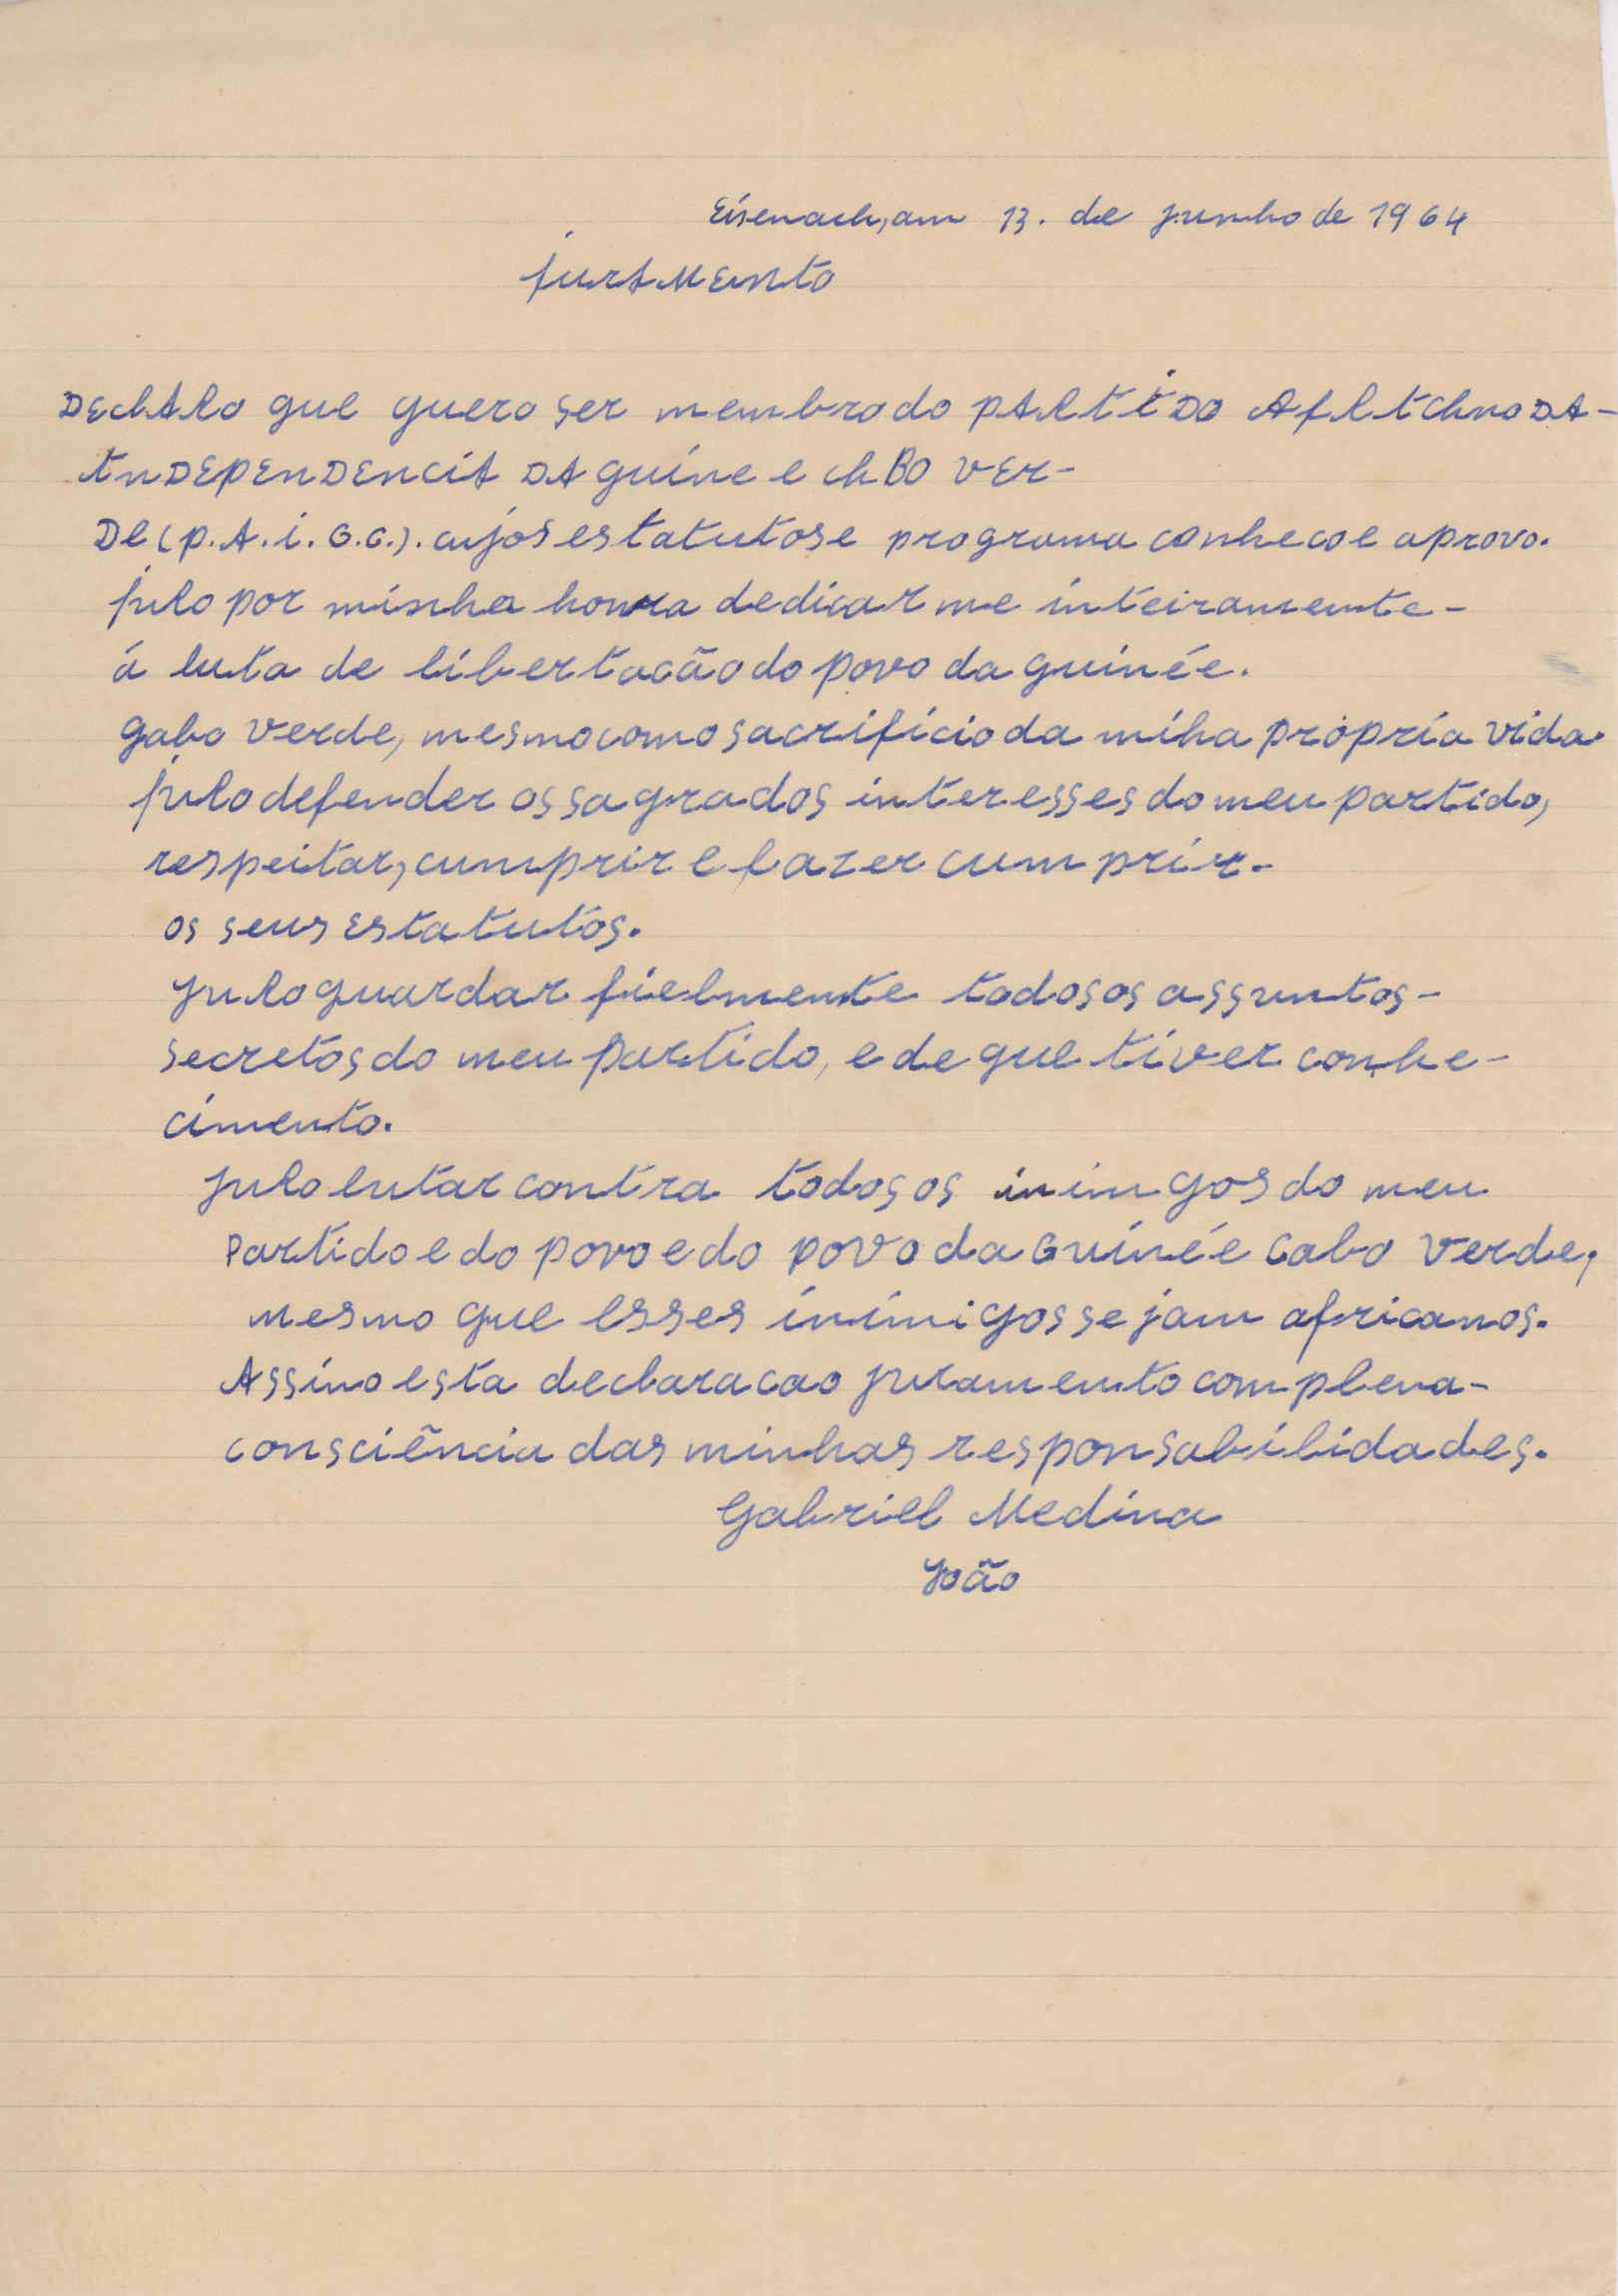 Eisenach, am 13. de junho de 1964
jurAMento
DEclARo que quero ser membro do pARtiDO AfRicAno DA-
inDEpEnDEnciA DA guine e cABO vEr-
De (p.A.i.G.C.). cujos estatutos e programa conheco e aprovo.
juro por minha honra dedicar me inteiramente-
á luta de libertacão do povo da guinée.
gabo verde, mesmo como sacrificio da miha própria vida.
juro defender os sagrados interesses do meu partido,
respeitar, cumprir e fazer cumprir.-
os seus estatutos.
juro guardar fielmente todos os assuntos-
secretos do meu partido, e de que tiver conhe-
cimento.
juro lutar contra todos os inimgos do meu
partido e do povo e do povo da Guinée Cabo verde,
mesmo que esses inimigos sejam africanos.
Assino esta declaracao juramento com plena-
consciência das minhas responsabilidades.
Gabriel Medina
João